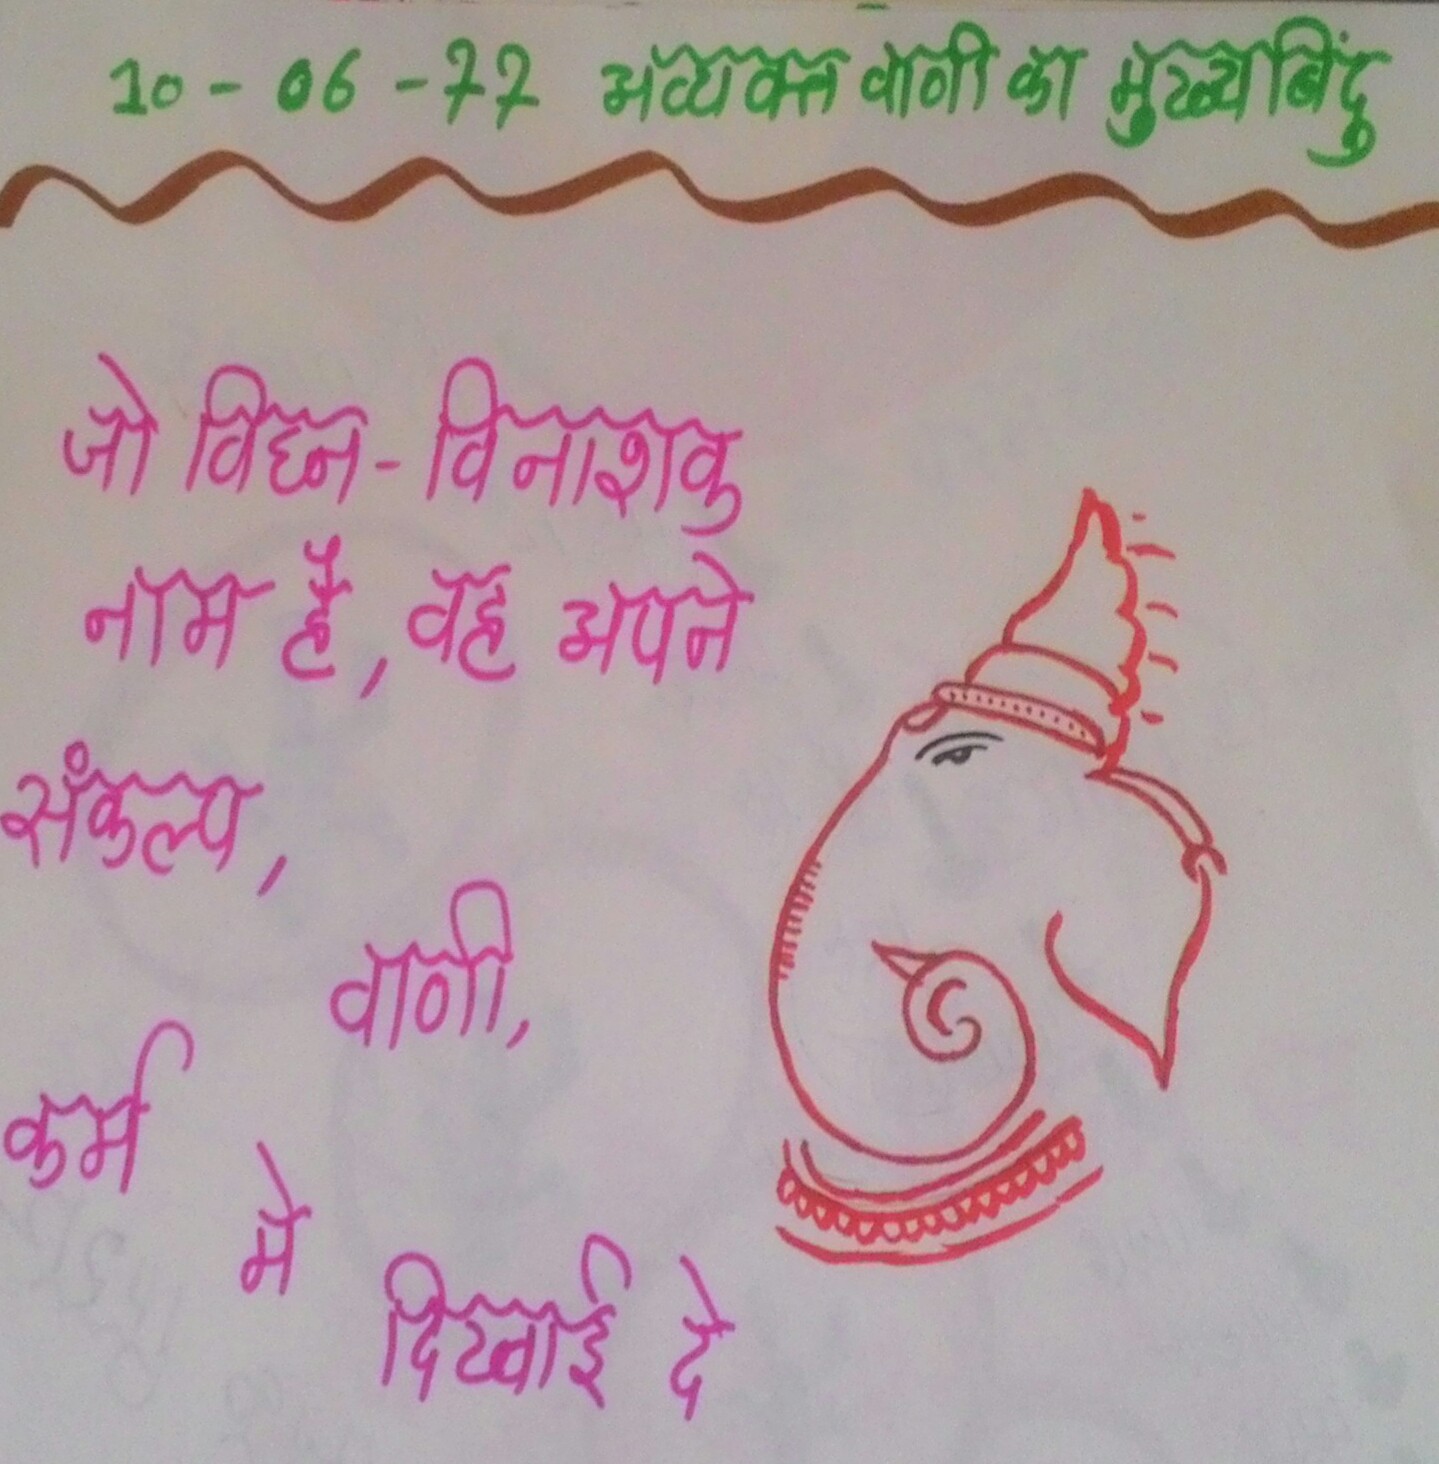 10-06-77 अव्यक्त वाणी का मुख्य बिंदु
जो विघ्न-विनाशक
नाम है, वह अपने
संकल्प,
वाणी,
कर्म
में
दिखाई दे